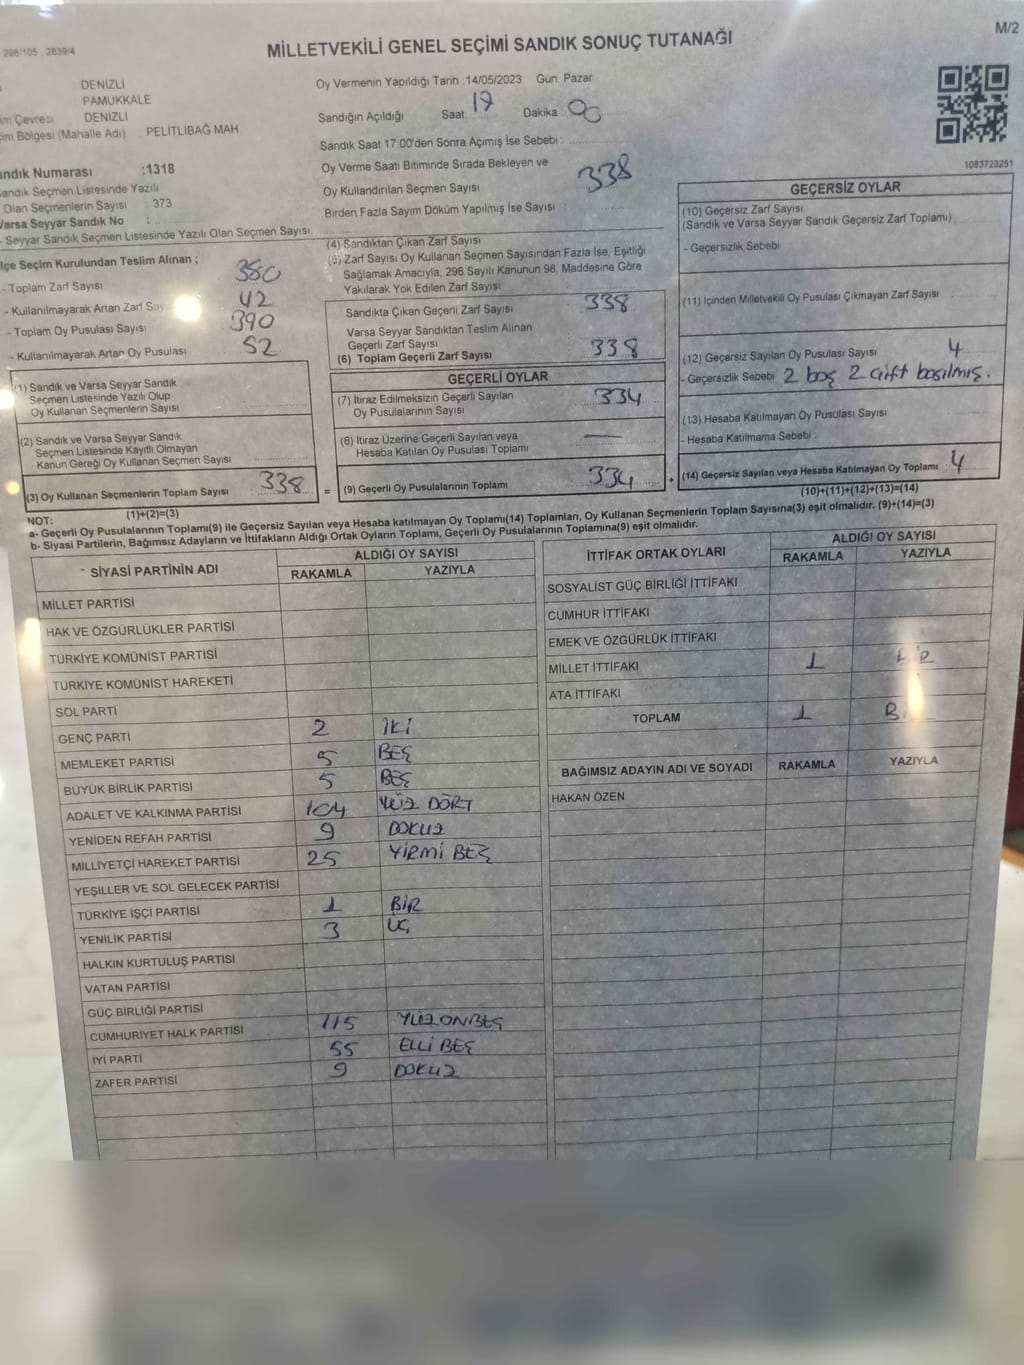 298/105 2839/4
M/2
MİLLETVEKİLİ GENEL SEÇİMİ SANDIK SONUÇ TUTANAĞI
DENİZLİ
PAMUKKALE
im Çevresi DENİZLİ
im Bölgesi (Mahalle Adı) PELİTLİBAĞ MAH
andık Numarası :1318
andık Seçmen Listesinde Yazılı
Olan Seçmenlerin Sayısı : 373
Varsa Seyyar Sandık No :
- Seyyar Sandık Seçmen Listesinde Yazılı Olan Seçmen Sayısı
Oy Vermenin Yapıldığı Tarih :14/05/2023 Gün: Pazar
Sandığın Açıldığı Saat 17 Dakika 00
Sandık Saat 17:00'den Sonra Açımış İse Sebebi :
Oy Verme Saati Bitiminde Sırada Bekleyen ve
Oy Kullandırılan Seçmen Sayısı 338
Birden Fazla Sayım Döküm Yapılmış İse Sayısı
1083723251
lçe Seçim Kurulundan Teslim Alınan ;
- Toplam Zarf Sayısı 380
- Kullanılmayarak Artan Zarf Sayısı 42
- Toplam Oy Pusulası Sayısı 390
- Kullanılmayarak Artan Oy Pusulası 52
(1) Sandık ve Varsa Seyyar Sandık
Seçmen Listesinde Yazılı Olup
Oy Kullanan Seçmenlerin Sayısı
(2) Sandık ve Varsa Seyyar Sandık
Seçmen Listesinde Kayıtlı Olmayan
Kanun Gereği Oy Kullanan Seçmen Sayısı
(3) Oy Kullanan Seçmenlerin Toplam Sayısı 338
(1)+(2)=(3)
(4) Sandıktan Çıkan Zarf Sayısı
(5) Zarf Sayısı Oy Kullanan Seçmen Sayısından Fazla İse, Eşitliği
Sağlamak Amacıyla, 298 Sayılı Kanunun 98. Maddesine Göre
Yakılarak Yok Edilen Zarf Sayısı
Sandıkta Çıkan Geçerli Zarf Sayısı 338
Varsa Seyyar Sandıktan Teslim Alınan
Geçerli Zarf Sayısı
(6) Toplam Geçerli Zarf Sayısı 338
GEÇERLİ OYLAR
(7) İtiraz Edilmeksizin Geçerli Sayılan
Oy Pusulalarının Sayısı 334
(8) İtiraz Üzerine Geçerli Sayılan veya
Hesaba Katılan Oy Pusulası Toplamı —
= (9) Geçerli Oy Pusulalarının Toplamı 334 +
GEÇERSİZ OYLAR
(10) Geçersiz Zarf Sayısı
(Sandık ve Varsa Seyyar Sandık Geçersiz Zarf Toplamı)
- Geçersizlik Sebebi
(11) İçinden Milletvekili Oy Pusulası Çıkmayan Zarf Sayısı
(12) Geçersiz Sayılan Oy Pusulası Sayısı 4
- Geçersizlik Sebebi 2 boş 2 çift basılmış.
(13) Hesaba Katılmayan Oy Pusulası Sayısı
- Hesaba Katılmama Sebebi :
(14) Geçersiz Sayılan veya Hesaba Katılmayan Oy Toplamı : 4
(10)+(11)+(12)+(13)=(14)
NOT:
a- Geçerli Oy Pusulalarının Toplamı(9) ile Geçersiz Sayılan veya Hesaba katılmayan Oy Toplamı(14) Toplamları, Oy Kullanan Seçmenlerin Toplam Sayısına(3) eşit olmalıdır. (9)+(14)=(3)
b- Siyasi Partilerin, Bağımsız Adayların ve İttifakların Aldığı Ortak Oyların Toplamı, Geçerli Oy Pusulalarının Toplamına(9) eşit olmalıdır.
SİYASİ PARTİNİN ADI ALDIĞI OY SAYISI
RAKAMLA YAZIYLA
MİLLET PARTİSİ
HAK VE ÖZGÜRLÜKLER PARTİSİ
TÜRKİYE KOMÜNİST PARTİSİ
TÜRKİYE KOMÜNİST HAREKETİ
SOL PARTİ
GENÇ PARTİ 2 İKİ
MEMLEKET PARTİSİ 5 BEŞ
BÜYÜK BİRLİK PARTİSİ 5 BEŞ
ADALET VE KALKINMA PARTİSİ 104 YÜZ DÖRT
YENİDEN REFAH PARTİSİ 9 DOKUZ
MİLLİYETÇİ HAREKET PARTİSİ 25 YİRMİ BEŞ
YEŞİLLER VE SOL GELECEK PARTİSİ
TÜRKİYE İŞÇİ PARTİSİ 1 BİR
YENİLİK PARTİSİ 3 ÜÇ
HALKIN KURTULUŞ PARTİSİ
VATAN PARTİSİ
GÜÇ BİRLİĞİ PARTİSİ
CUMHURİYET HALK PARTİSİ 115 YÜZ ONBEŞ
İYİ PARTİ 55 ELLİ BEŞ
ZAFER PARTİSİ 9 DOKUZ
İTTİFAK ORTAK OYLARI ALDIĞI OY SAYISI
RAKAMLA YAZIYLA
SOSYALİST GÜÇ BİRLİĞİ İTTİFAKI
CUMHUR İTTİFAKI
EMEK VE ÖZGÜRLÜK İTTİFAKI
MİLLET İTTİFAKI 1
ATA İTTİFAKI
TOPLAM 1
BAĞIMSIZ ADAYIN ADI VE SOYADI RAKAMLA YAZIYLA
HAKAN ÖZEN